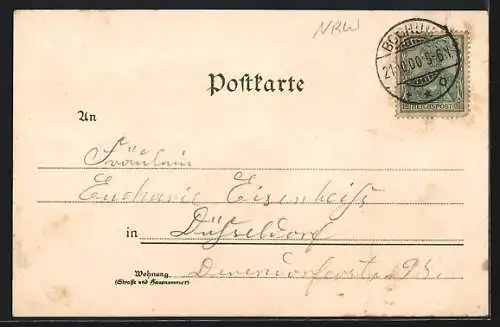 NRW
BOCHUM
21.10.00.5-6N.
REICHSPOST
Postkarte
An
Fräulein
Eucharie Eisenheiß
in Düsseldorf
Wohnung. Derendorferstr. 95.
(Straße und Hausnummer)